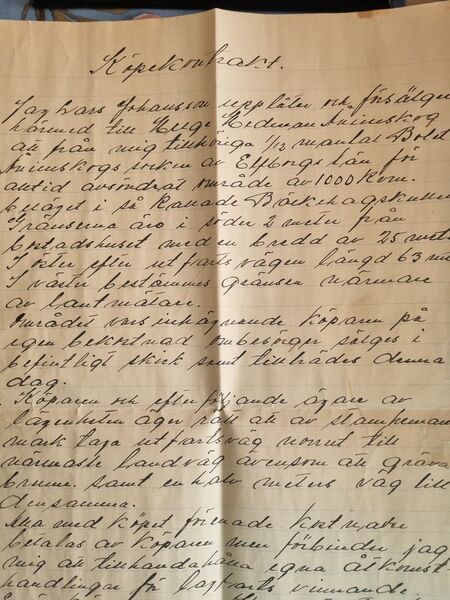 Köpekontrakt.
Jag Lars Johansson upplåter och försäljer
härmed till Helge Hedman Ånimskog
att från mig tillhöriga 1/12 mantal Bold
Ånimskogs socken av Elfborgs län för
alltid avsöndrat område av 1000 kvm.
beläget i så kallade Bäckehagskullen
Gränserna äro i söder 2 meter från
bostadshuset med en bredd av 25 met
I öster efter utfartsvägen längd 63 m
I väster bestämmes gränsen närmare
av lantmätare.
Området vars inhägnande köparen på
egen bekostnad ombesörjer säljes i
befintligt skick samt tillträdes denna
dag.
Köparen och efterföljande ägare av
lägenheten äger rätt att av
mark taga utfartsväg norrut till
närmaste landväg ävensom att gräva
brunn. samt en halv meters väg till
densamma.
Alla med köpet förenade kostnader
betalas av köparen men förbinder jag
mig att tillhandahålla egna åtkomst-
handlingar för lagfarts vinnande.